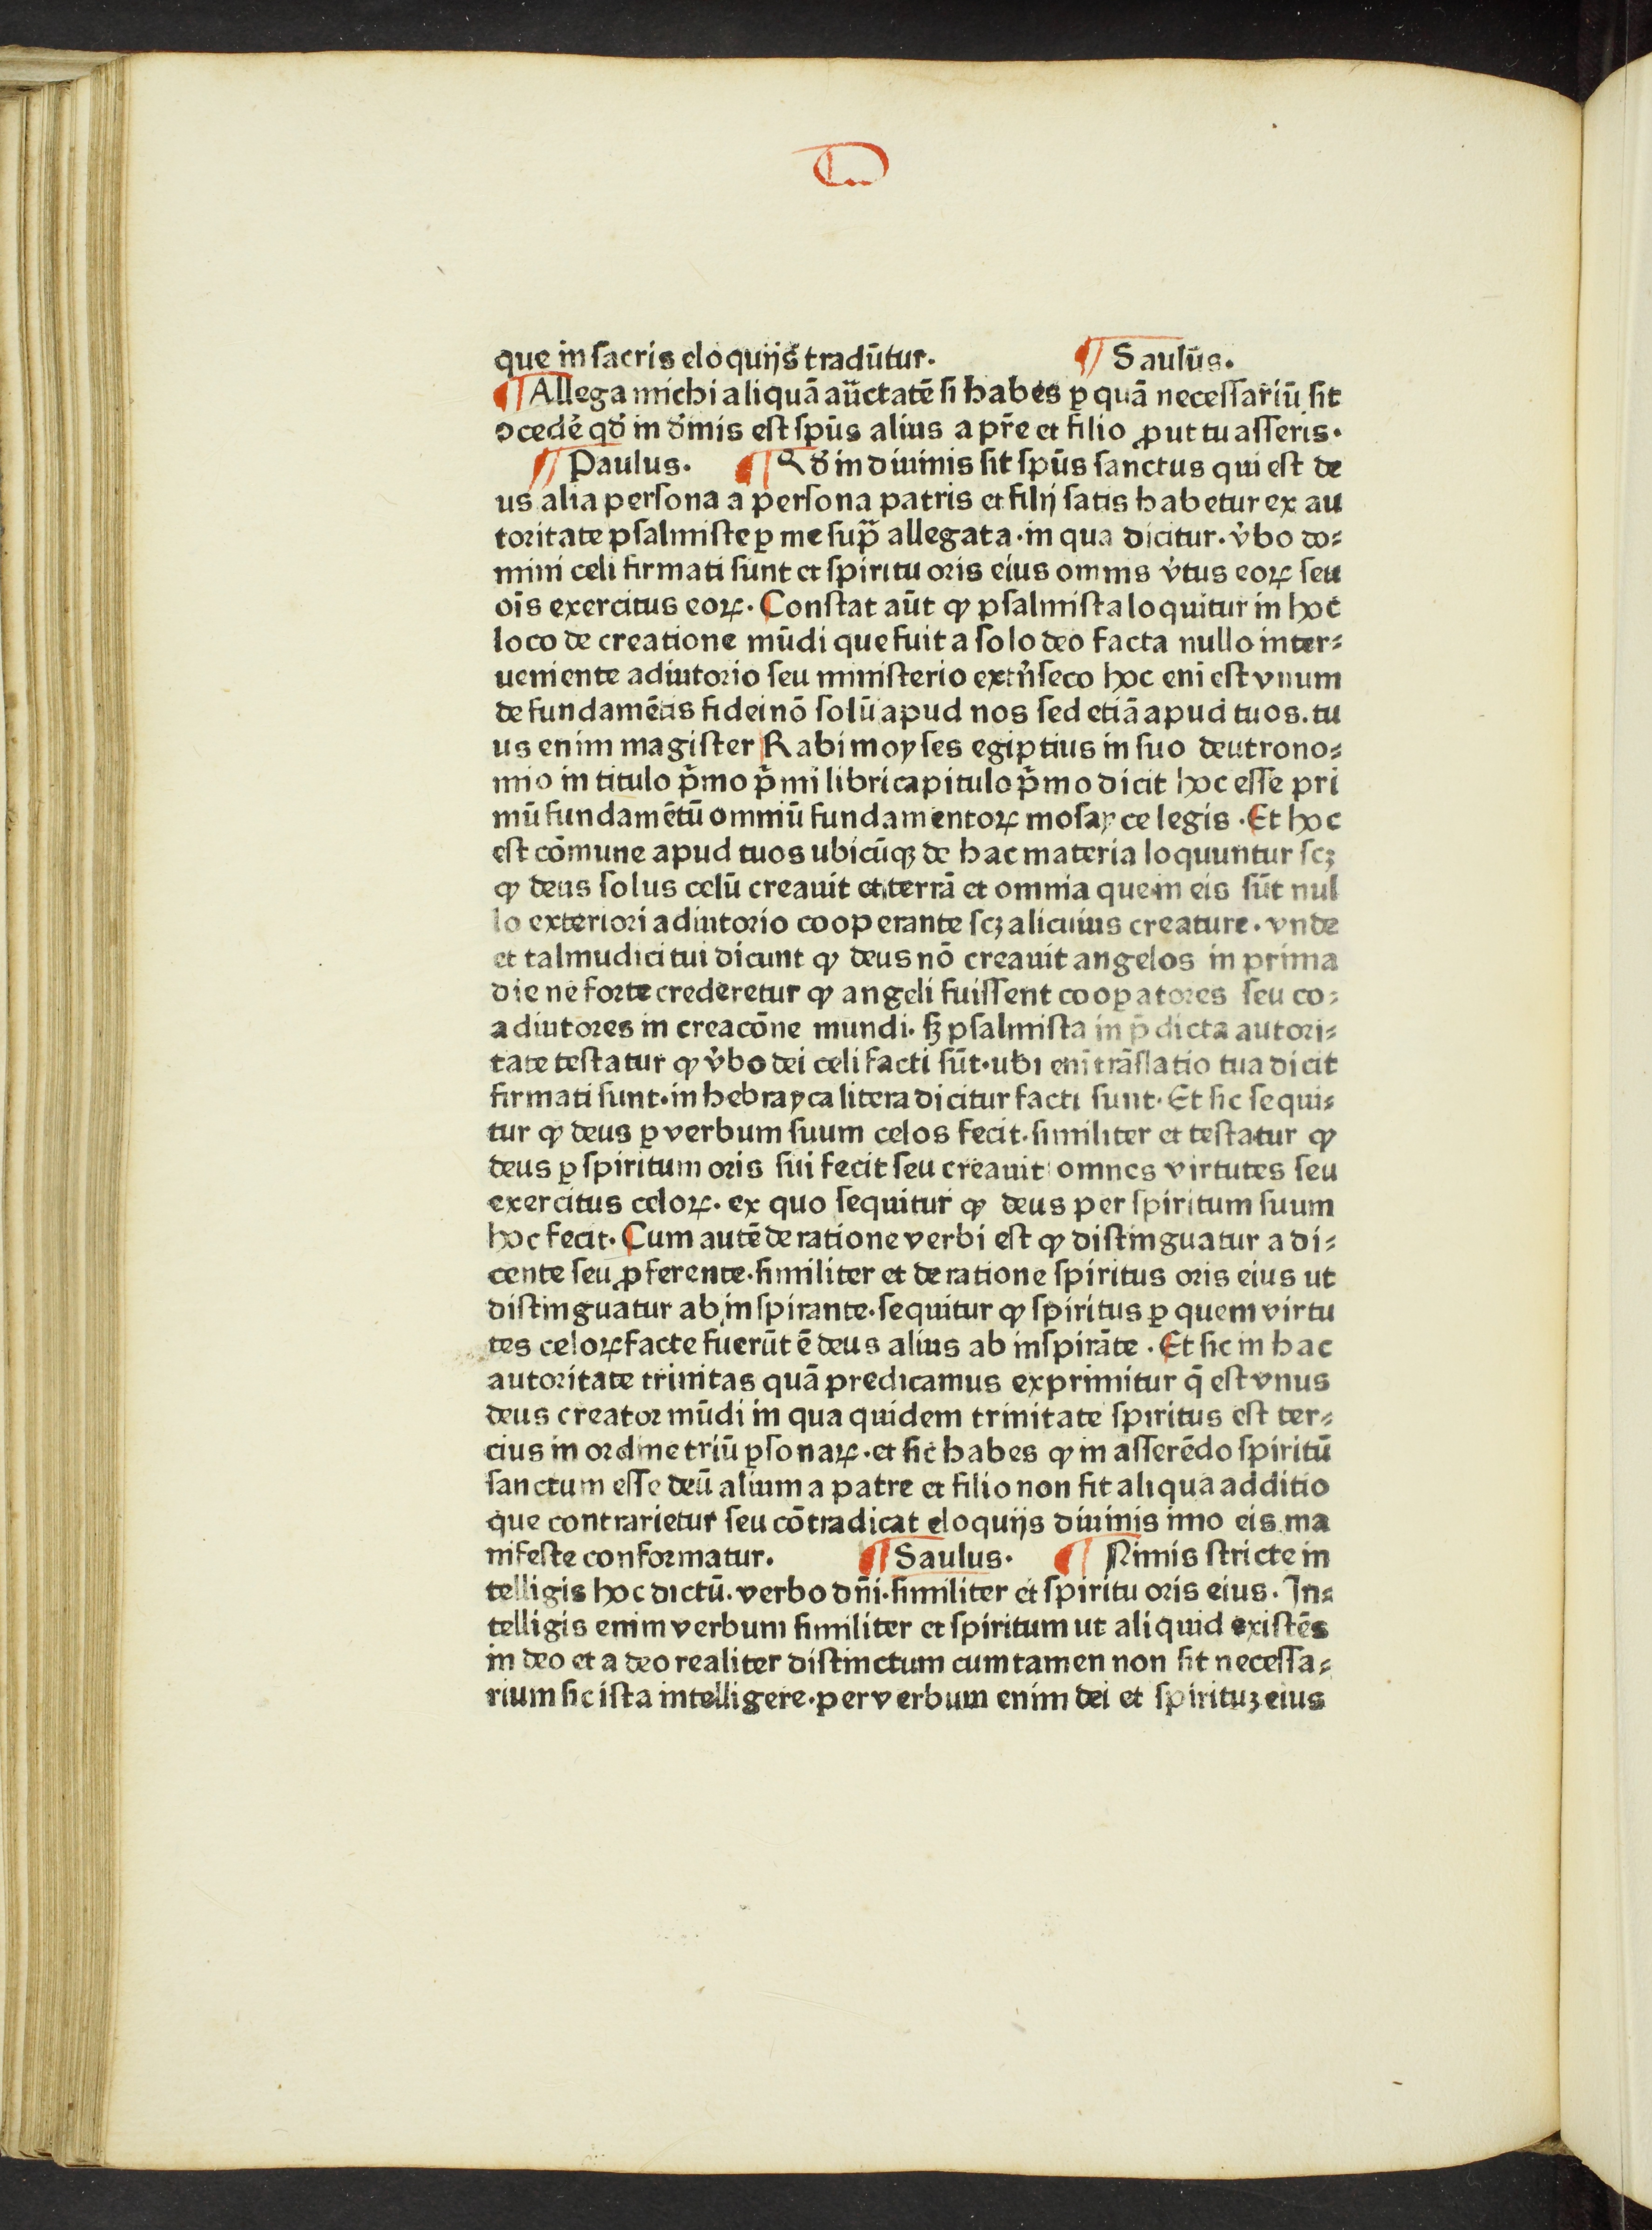 que in sacris eloquijs tradūtur. ¶ Saulus.
¶ Allega michi aliquā auctatē si habes ꝑ quā necessariū sit
ↄcedē qď in ďinis est spūs alius a pr̄e et filio ꝓut tu asseris.
¶ Paulus. ¶ Qď in diuinis sit spūs sanctus qui est de
us alia persona a persona patris et filij satis habetur ex au
toritate psalmiste ꝑ me supͣ allegata. in qua dicitur. v̓bo do⸗
mini celi firmati sunt et spiritu oris eius omnis v̓tus eoꝝ seu
oīs exercitus eoꝝ. Constat aūt ꝙ psalmista loquitur in hoc
loco de creatione mūdi que fuit a solo deo facta nullo inter⸗
ueniente adiutorio seu ministerio extn̓seco hoc eni est vnum
de fundamētis fidei nō solū apud nos sed etiā apud tuos. tu
us enim magister Rabi moyses egiptius in suo deutrono⸗
mio in titulo pͥmo pͥmi libri capitulo pͥmo dicit hoc esse pri
mū fundamētū omniū fundamentoꝝ mosayce legis. Et hoc
est cōmune apud tuos ubicūqꝫ de hac materia loquuntur scꝫ
ꝙ deus solus celū creauit et terrā et omnia que in eis sūt nul
lo exteriori adiutorio cooperante scꝫ alicuius creature. vnde
et talmudici tui dicunt ꝙ deus nō creauit angelos in prima
die ne forte crederetur ꝙ angeli fuissent cooꝑatores seu co⸗
adiutores in creacōne mundi. sꝫ psalmista in p̄dicta autori⸗
tate testatur ꝙ v̓bo dei celi facti sūt. ubi eni trāslatio tua dicit
firmati sunt. in hebrayca litera dicitur facti sunt. Et sic sequi⸗
tur ꝙ deus ꝑ verbum suum celos fecit. similiter et testatur ꝙ
deus ꝑ spiritum oris sui fecit seu creauit omnes virtutes seu
exercitus celoꝝ. ex quo sequitur ꝙ deus per spiritum suum
hoc fecit. Cum autē de ratione verbi est ꝙ distinguatur a di⸗
cente seu ꝓferente. similiter et de ratione spiritus oris eius ut
distinguatur ab inspirante. sequitur ꝙ spiritus ꝑ quem virtu
tes celoꝝ facte fuerūt ē deus alius ab inspirāte. Et sic in hac
autoritate trinitas quā predicamus exprimitur q̄ est vnus
deus creator mūdi in qua quidem trinitate spiritus est ter⸗
cius in ordine triū ꝑsonaꝝ. et sic habes ꝙ in asserēdo spiritū
sanctum esse deū alium a patre et filio non fit aliqua additio
que contrarietur seu cōtradicat eloquijs diuinis imo eis ma
nifeste conformatur. ¶ Saulus. ¶ Nimis stricte in
telligis hoc dictū. verbo dn̄i. similiter et spiritu oris eius. In⸗
telligis enim verbum similiter et spiritum ut aliquid existēs
in deo et a deo realiter distinctum cum tamen non sit necessa⸗
rium sic ista intelligere. per verbum enim dei et spirituꝫ eius